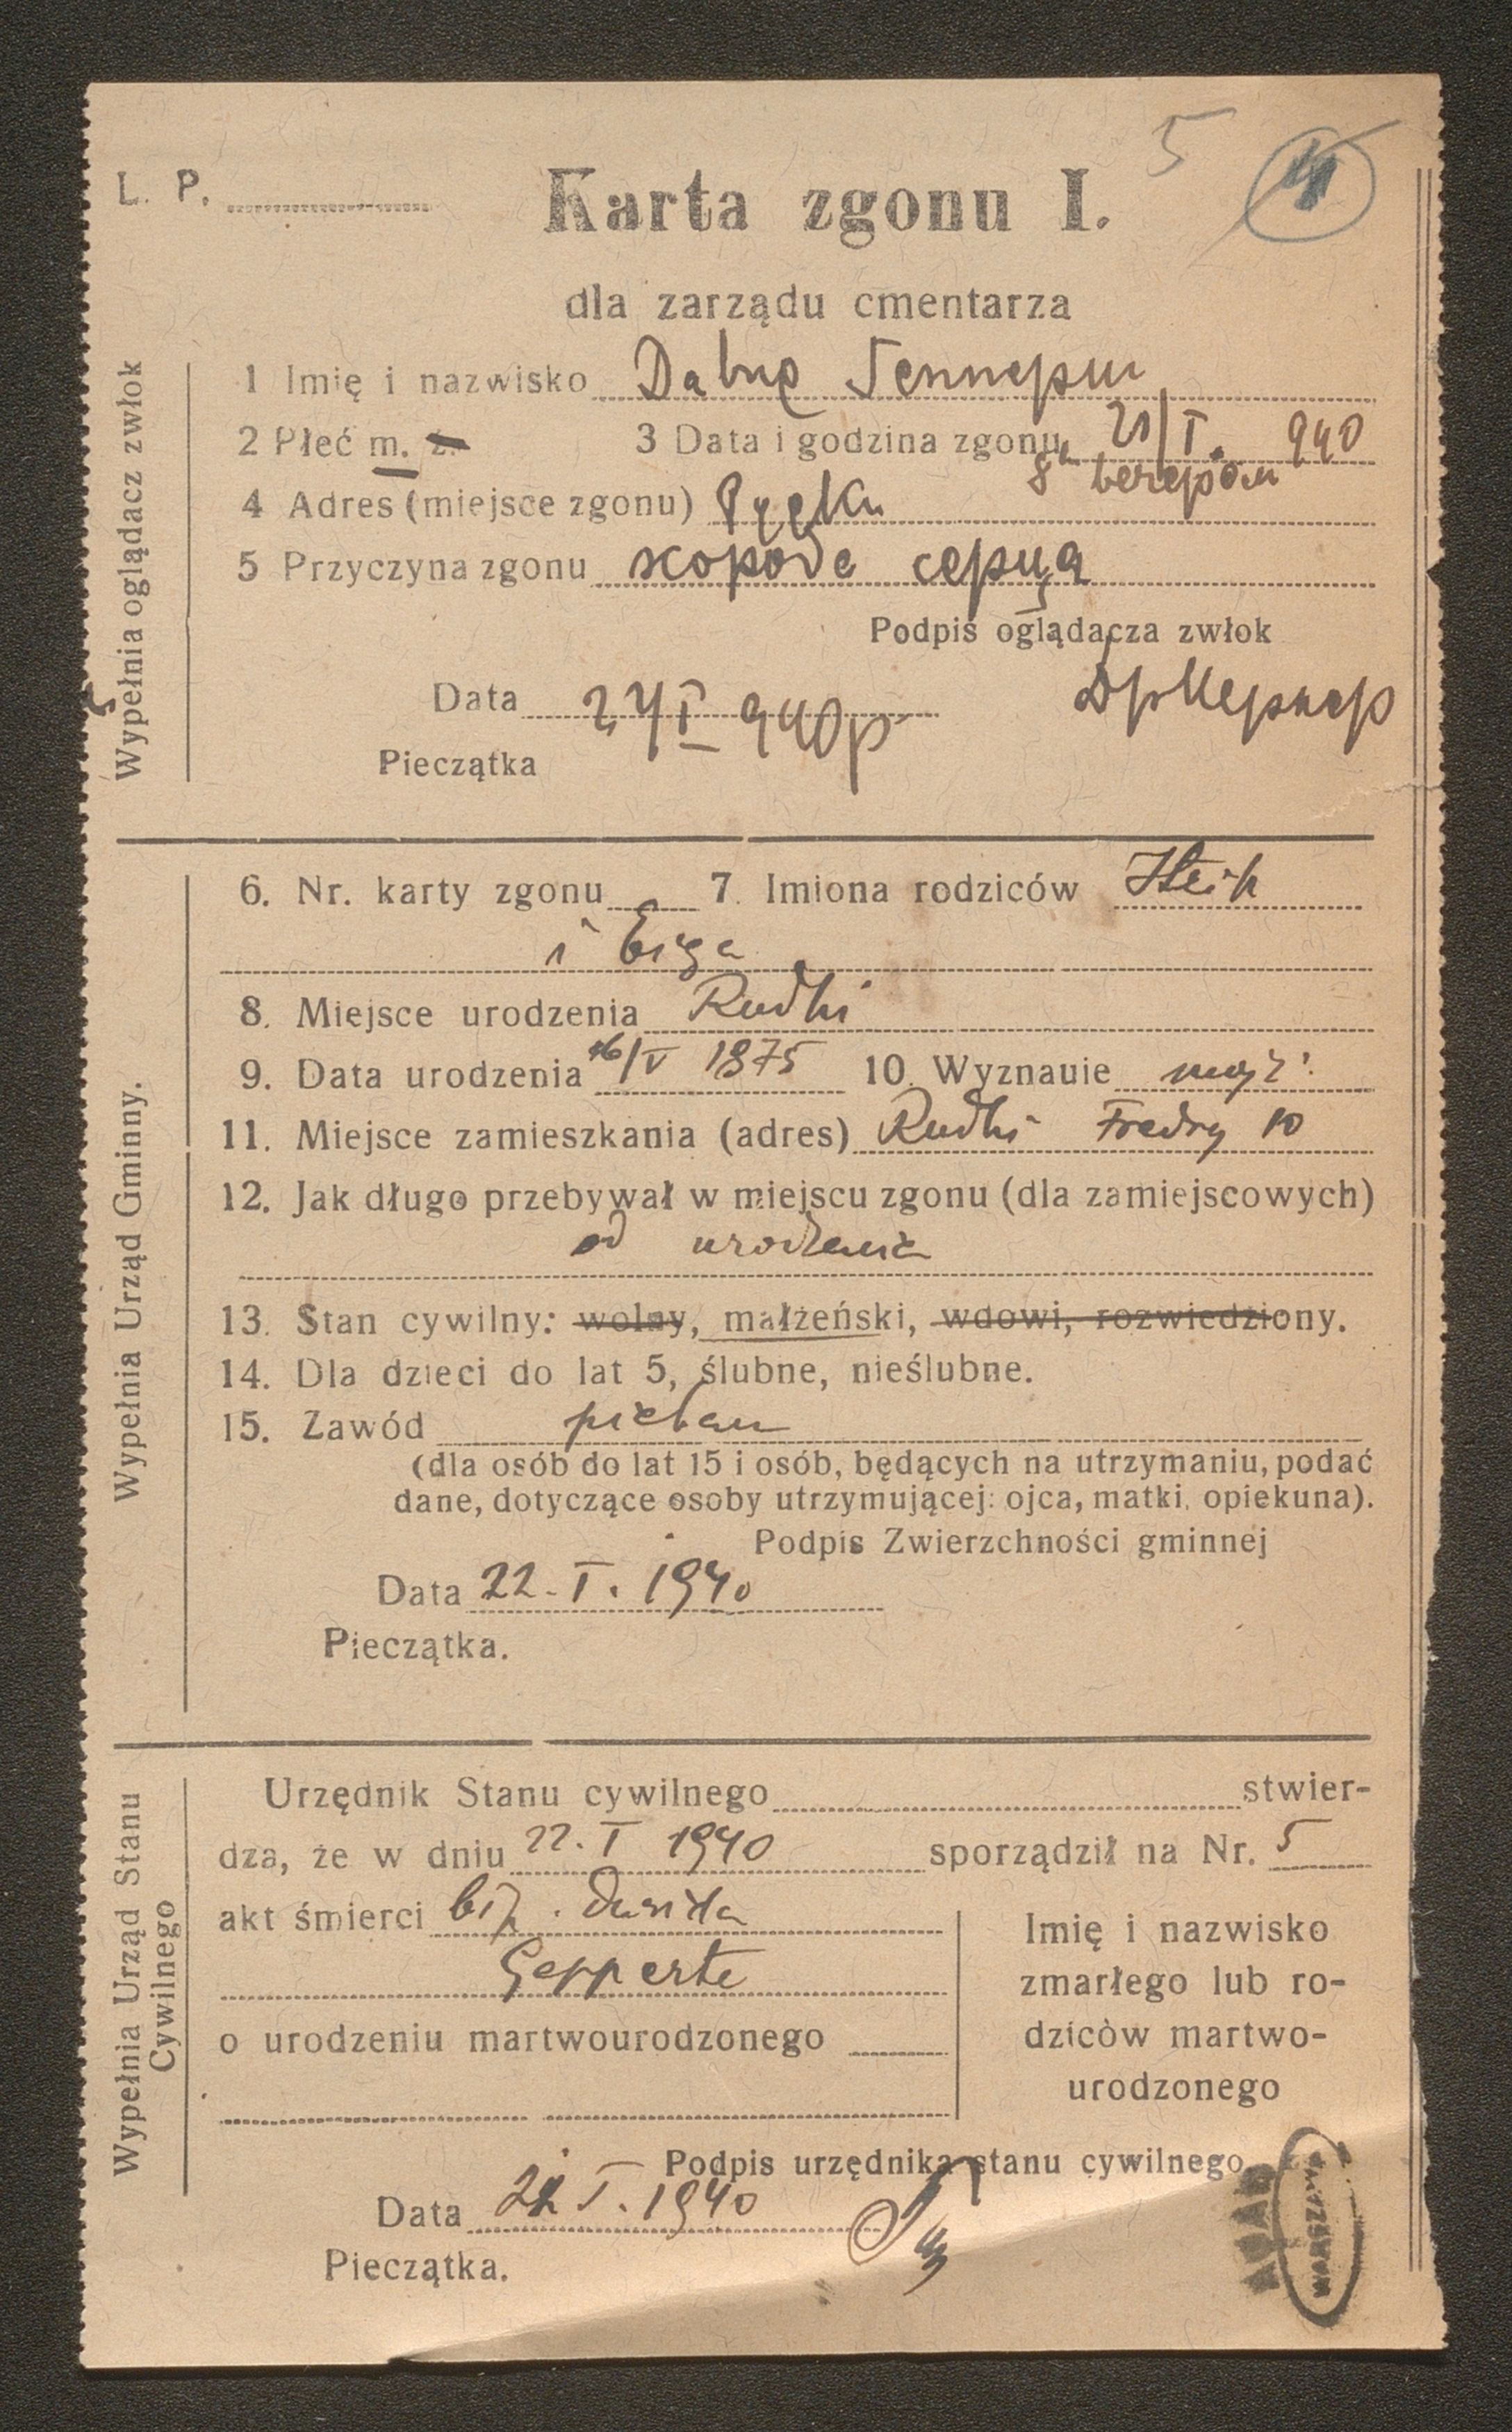 5 4
L. P.
Karta zgonu I.
dla zarządu cmentarza
Wypełnia oglądacz zwłok
1 Imię i nazwisko Давид Геппертн
2 Płeć m. ż. 3 Data i godzina zgonu 21/I. 940
8h вечером
4 Adres (miejsce zgonu) Рудки
5 Przyczyna zgonu хороба серця
Podpis oglądacza zwłok
Data 24/I 940р
Pieczątka
Wypełnia Urząd Gminny.
6. Nr. karty zgonu 7. Imiona rodziców
i
8. Miejsce urodzenia Rudki
9. Data urodzenia 16/V 1875 10. Wyznauie mojż.
11. Miejsce zamieszkania (adres) Rudki Fredry 10
12. Jak długo przebywał w miejscu zgonu (dla zamiejscowych)
od urodzenia
13. Stan cywilny: wolny, małżeński, wdowi, rozwiedziony.
14. Dla dzieci do lat 5, ślubne, nieślubne.
15. Zawód piekarz
(dla osób do lat 15 i osób, będących na utrzymaniu, podać
dane, dotyczące osoby utrzymującej: ojca, matki, opiekuna).
Podpis Zwierzchności gminnej
Data 22. I. 1940
Pieczątka.
Wypełnia Urząd Stanu
Cywilnego
Urzędnik Stanu cywilnego stwier-
dza, że w dniu 22. I 1940 sporządził na Nr. 5
akt śmierci Dawida
Gepperta
o urodzeniu martwourodzonego
Imię i nazwisko
zmarłego lub ro-
dziców martwo-
urodzonego
Podpis urzędnika stanu cywilnego
Data 22 I. 1940
Pieczątka.
AGAD
WARSZAWA